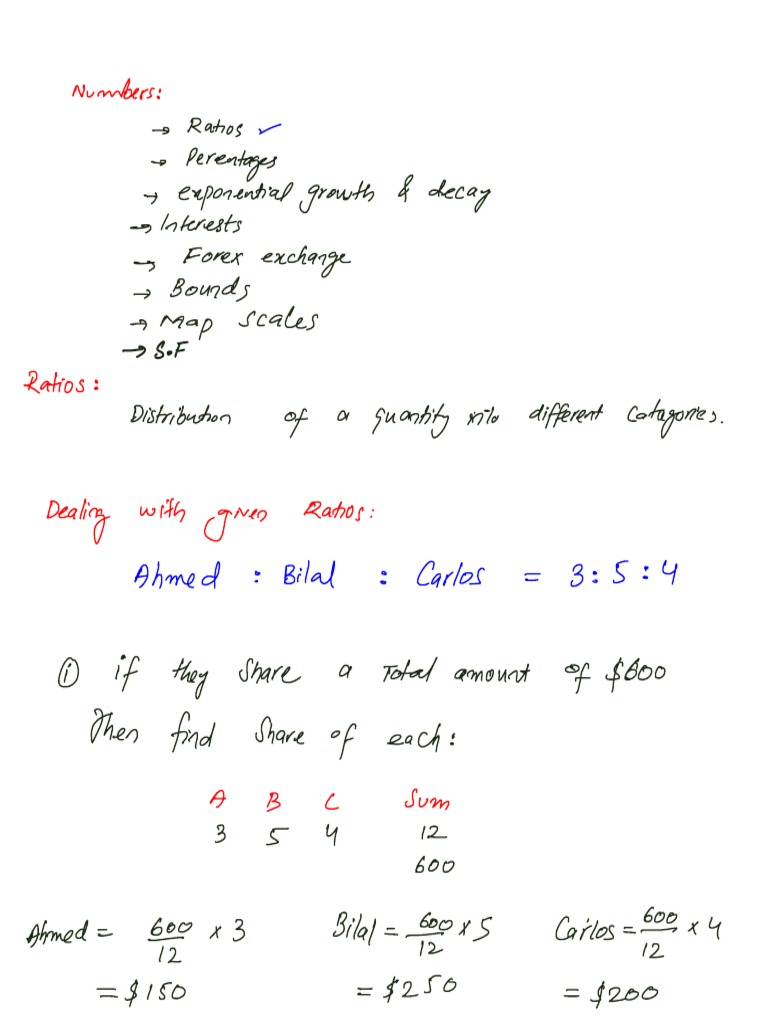 Numbers:
→ Ratios ✓
→ Perentages
→ exponential growth & decay
→ Interests
→ Forex exchange
→ Bounds
→ Map scales
→ S.F
Ratios:
Distribution of a quantity into different Catagories.
Dealing with given Ratios:
Ahmed : Bilal : Carlos = 3 : 5 : 4
① if they share a Total amount of $600
Then find share of each:
A B C Sum
3 5 4 12
600
Ahmed = 600/12 × 3 Bilal = 600/12 × 5 Carlos = 600/12 × 4
= $150 = $250 = $200